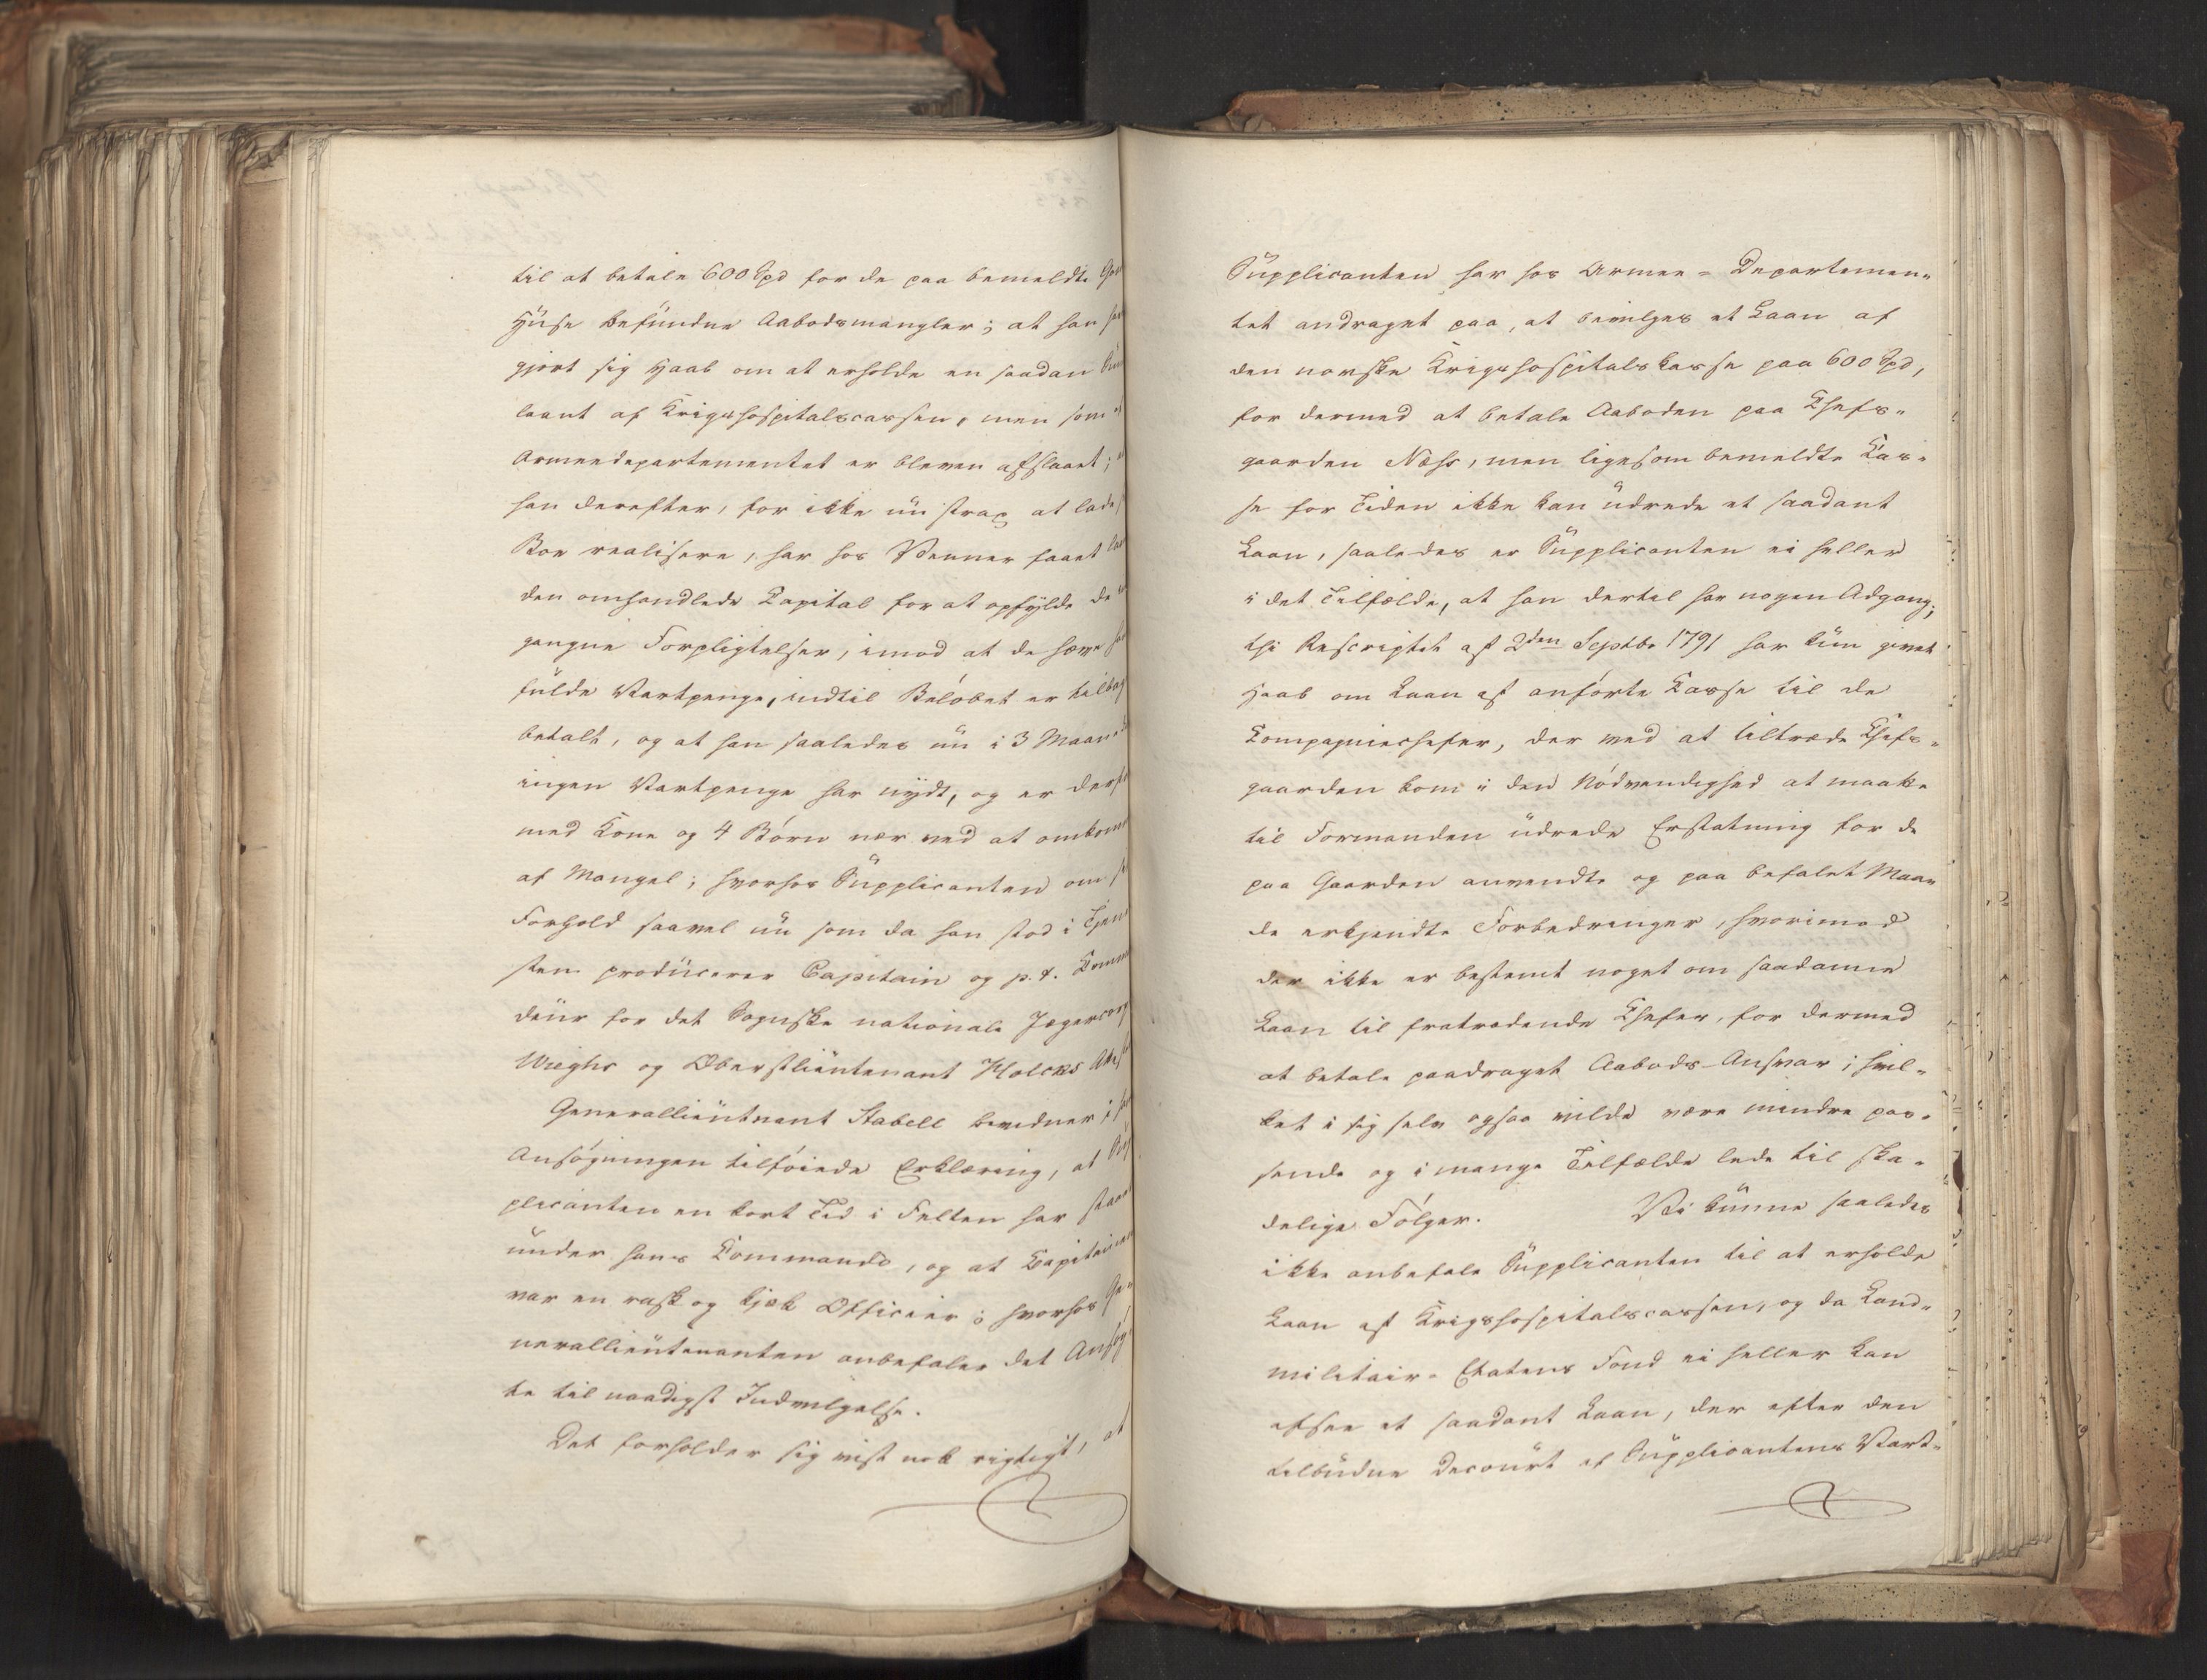 til at betale 600 Spd for de paa bemeldte
Huse befundne Aabodsmangler; at han
gjort sig Haab om at erholde en saadan
laant af Krigshospitalscassen, men som
Armeedepartementet er bleven afslaaet;
han derefter, for ikke nu strax at lade
Boe realisere, har hos Venner faaet
den omhandlede Capital for at opfylde de
gangne Forpligtelser, imod at de hæve
fulde Vartpenge, indtil Beløbet er
betalt, og at han saaledes nu i 3
ingen Vartpenge har nydt, og er
med Kone og 4 Børn nær ved at
af Mangel; hvorhos Supplicanten om
Forhold saavel nu som da han stod i
sten producerer Capitain og p. t.
deur for det Sognske nationale
Wieghs og Oberstlieutenant Holcks
Generallieutnant Stabell bevidner i
Ansøgningen tilføiede Erklæring, at
plicanten en kort Tid i Felten har
under hans Commando, og at
var en rask og kjæk Officier; hvorhos Ge-
nerallieutenanten anbefaler det
te til naadigst Indvilgelse.
Det forholder sig vist nok rigtigt, at
Supplicanten har hos Armee-Departemen-
tet andraget paa, at bevilges et Laan af
den norske Krigshospitalskasse paa 600 Spd,
for dermed at betale Aaboden paa Chefs-
gaarden Næss, men ligesom bemeldte Cas-
se for Tiden ikke kan udrede et saadant
Laan, saaledes er Supplicanten ei heller
i det Tilfælde, at han dertil har nogen Adgang;
thi Rescriptet af 2den Septbr 1791 har kun givet
Haab om Laan af anførte Casse til de
Compagniechefer, der ved at tiltræde Chefs-
gaarden kom i den Nødvendighed at maatte
til Formanden udrede Erstatning for de
paa Gaarden anvendte og paa befalet Maa-
de erkjendte Forbedringer, hvorimod
der ikke er bestemt noget om saadanne
Laan til fratrædende Chefer, for dermed
at betale paadraget Aabods-Ansvar; hvil-
ket i sig selv ogsaa vilde være mindre pas-
sende og i mange Tilfælde lede til ska-
delige Følger. Vi kunne saaledes
ikke anbefale Supplicanten til at erholde
Laan af Krigshospitalscassen, og da Land-
militair-Etatens Fond ei heller kan
afsee et saadant Laan, der efter den
tilbudne Decourt af Supplicantens Vart-